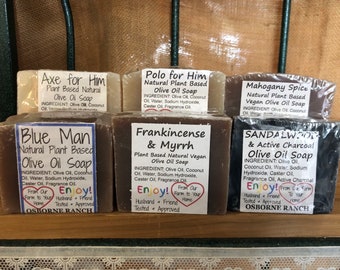 Axe for Him
Plant Based Natural
Olive Oil Soap
INGREDIENT: Olive Oil, Coconut
Oil, Water, Sodium Hydroxide,
Castor Oil, Fragrance Oil
Polo for Him
Natural Plant Based
Olive Oil Soap
INGREDIENT: Olive Oil, Coconut
Oil, Water, Sodium Hydroxide,
Castor Oil, Fragrance Oil
Mahogany Spice
Natural Plant Based
Vegan Olive Oil Soap
INGREDIENT: Olive Oil, Coconut
Oil, Water, Sodium Hydroxide,
Castor Oil, Fragrance Oil
Blue Man
Natural Plant Based
Olive Oil Soap
INGREDIENTS: Olive Oil, Coconut
Oil, Water, Sodium Hydroxide,
Castor Oil, Fragrance Oil
Enjoy!
From Our
Farm to Your
Home
Husband + Friend
Tested + Approved
OSBORNE RANCH
Frankincense
& Myrrh
Plant Based Natural Vegan
Olive Oil Soap
INGREDIENT: Olive Oil, Coconut
Oil, Water, Sodium Hydroxide,
Castor Oil, Fragrance Oil
Enjoy!
From Our
Farm to Your
Home
Husband + Friend
Tested + Approved
SANDALWOOD
& Active Charcoal
Olive Oil Soap
INGREDIENTS: Olive Oil, Coconut
Oil, Water, Sodium Hydroxide,
Castor Oil, Fragrance Oil, Active Charcoal
Enjoy!
From Our Farm
to Your
Home
Husband + Friend
Tested + Approved
OSBORNE RANCH